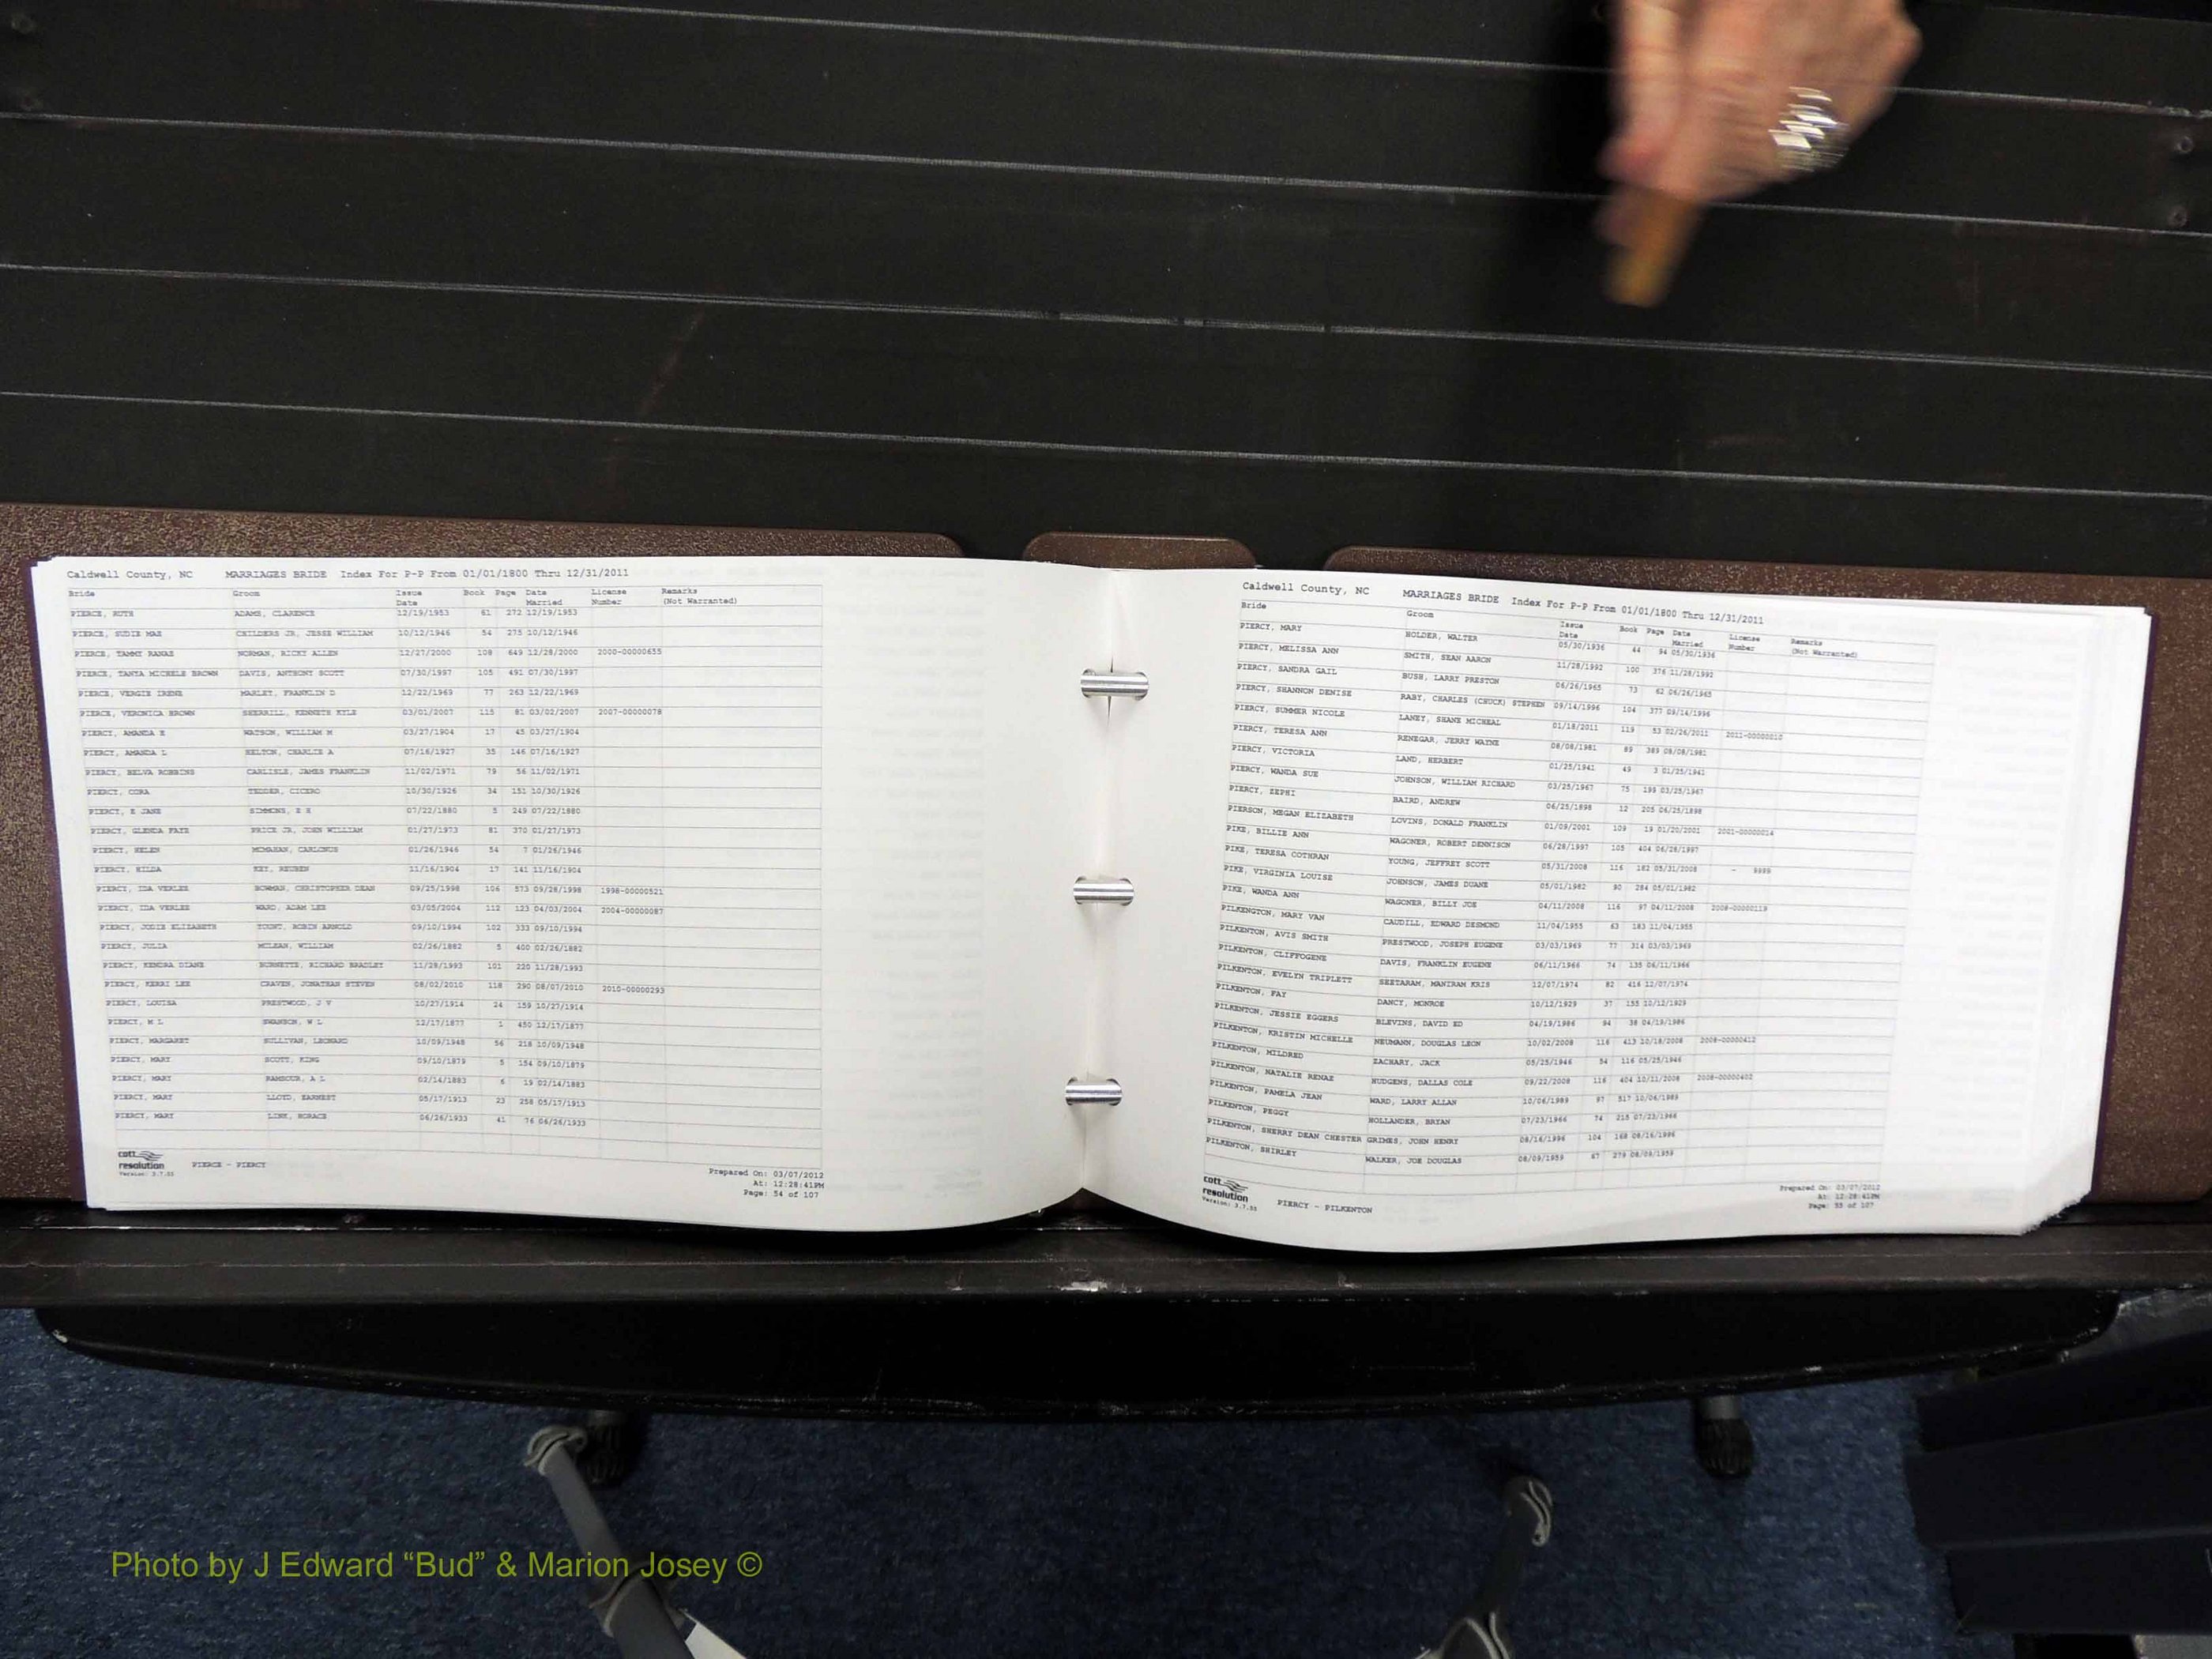 Caldwell County, NC MARRIAGES BRIDE Index For P-P From 01/01/1800 Thru 12/31/2011
Bride Groom Issue Date Book Page Date Married License Number Remarks (Not Warranted)
PIERCE, RUTH ADAMS, CLARENCE 12/19/1953 61 272 12/19/1953
PIERCE, SUDIE MAE CHILDERS JR, JESSE WILLIAM 10/12/1946 54 275 10/12/1946
PIERCE, TAMMY RANAE NORMAN, RICKY ALLEN 12/27/2000 108 649 12/28/2000 2000-00000655
PIERCE, TANYA MICHELE BROWN DAVIS, ANTHONY SCOTT 07/30/1997 105 491 07/30/1997
PIERCE, VERGIE IRENE MARLEY, FRANKLIN D 12/22/1969 77 263 12/22/1969
PIERCE, VERONICA BROWN SHERRILL, KENNETH KYLE 03/01/2007 115 81 03/02/2007 2007-00000078
PIERCY, AMANDA E WATSON, WILLIAM M 03/27/1904 17 45 03/27/1904
PIERCY, AMANDA L HELTON, CHARLIE A 07/16/1927 35 146 07/16/1927
PIERCY, BELVA ROBBINS CARLISLE, JAMES FRANKLIN 11/02/1971 79 56 11/02/1971
PIERCY, CORA TEDDER, CICERO 10/30/1926 34 151 10/30/1926
PIERCY, E JANE SIMMONS, E H 07/22/1880 5 249 07/22/1880
PIERCY, GLENDA FAYE PRICE JR, JOHN WILLIAM 01/27/1973 81 370 01/27/1973
PIERCY, HELEN MCMAHAN, CARLONUS 01/26/1946 54 7 01/26/1946
PIERCY, HILDA KEY, REUBEN 11/16/1904 17 141 11/16/1904
PIERCY, IDA VERLEE BOWMAN, CHRISTOPHER DEAN 09/25/1998 106 573 09/28/1998 1998-00000521
PIERCY, IDA VERLEE WARD, ADAM LEE 03/05/2004 112 123 04/03/2004 2004-00000087
PIERCY, JODIE ELIZABETH YOUNT, ROBIN ARNOLD 09/10/1994 102 333 09/10/1994
PIERCY, JULIA MCLEAN, WILLIAM 02/26/1882 5 400 02/26/1882
PIERCY, KENDRA DIANE BURNETTE, RICHARD BRADLEY 11/28/1993 101 220 11/28/1993
PIERCY, KERRI LEE CRAVEN, JONATHAN STEVEN 08/02/2010 118 290 08/07/2010 2010-00000293
PIERCY, LOUISA PRESTWOOD, J V 10/27/1914 24 159 10/27/1914
PIERCY, M L SWANSON, W L 12/17/1877 1 450 12/17/1877
PIERCY, MARGARET SULLIVAN, LEONARD 10/09/1948 56 218 10/09/1948
PIERCY, MARY SCOTT, KING 09/10/1879 5 154 09/10/1879
PIERCY, MARY RAMSOUR, A L 02/14/1883 6 19 02/14/1883
PIERCY, MARY LLOYD, EARNEST 05/17/1913 23 258 05/17/1913
PIERCY, MARY LINK, HORACE 06/26/1933 41 76 06/26/1933
cott resolution Version: 3.7.55
PIERCE - PIERCY
Prepared On: 03/07/2012
At: 12:28:41PM
Page: 54 of 107
Caldwell County, NC MARRIAGES BRIDE Index For P-P From 01/01/1800 Thru 12/31/2011
Bride Groom Issue Date Book Page Date Married License Number Remarks (Not Warranted)
PIERCY, MARY HOLDER, WALTER 05/30/1936 44 94 05/30/1936
PIERCY, MELISSA ANN SMITH, SEAN AARON 11/28/1992 100 376 11/28/1992
PIERCY, SANDRA GAIL BUSH, LARRY PRESTON 06/26/1965 73 62 06/26/1965
PIERCY, SHANNON DENISE RABY, CHARLES (CHUCK) STEPHEN 09/14/1996 104 377 09/14/1996
PIERCY, SUMMER NICOLE LANEY, SHANE MICHEAL 01/18/2011 119 53 02/26/2011 2011-00000010
PIERCY, TERESA ANN RENEGAR, JERRY WAYNE 08/08/1981 89 389 08/08/1981
PIERCY, VICTORIA LAND, HERBERT 01/25/1941 49 3 01/25/1941
PIERCY, WANDA SUE JOHNSON, WILLIAM RICHARD 03/25/1967 75 199 03/25/1967
PIERCY, ZEPHI BAIRD, ANDREW 06/25/1898 12 205 06/25/1898
PIERSON, MEGAN ELIZABETH LOVINS, DONALD FRANKLIN 01/09/2001 109 19 01/20/2001 2001-00000014
PIKE, BILLIE ANN WAGONER, ROBERT DENNISON 06/28/1997 105 404 06/28/1997
PIKE, TERESA COTHRAN YOUNG, JEFFREY SCOTT 05/31/2008 116 182 05/31/2008 - 9999
PIKE, VIRGINIA LOUISE JOHNSON, JAMES DUANE 05/01/1982 90 284 05/01/1982
PIKE, WANDA ANN WAGONER, BILLY JOE 04/11/2008 116 97 04/11/2008 2008-00000119
PILKENGTON, MARY VAN CAUDILL, EDWARD DESMOND 11/04/1955 63 183 11/04/1955
PILKENTON, AVIS SMITH PRESTWOOD, JOSEPH EUGENE 03/03/1969 77 314 03/03/1969
PILKENTON, CLIFFOGENE DAVIS, FRANKLIN EUGENE 06/11/1966 74 135 06/11/1966
PILKENTON, EVELYN TRIPLETT SEETARAM, MANIRAM KRIS 12/07/1974 82 416 12/07/1974
PILKENTON, FAY DANCY, MONROE 10/12/1929 37 155 10/12/1929
PILKENTON, JESSIE EGGERS BLEVINS, DAVID ED 04/19/1986 94 38 04/19/1986
PILKENTON, KRISTIN MICHELLE NEUMANN, DOUGLAS LEON 10/02/2008 116 413 10/18/2008 2008-00000412
PILKENTON, MILDRED ZACHARY, JACK 05/25/1946 54 116 05/25/1946
PILKENTON, NATALIE RENAE HUDGENS, DALLAS COLE 09/22/2008 116 404 10/11/2008 2008-00000402
PILKENTON, PAMELA JEAN WARD, LARRY ALLAN 10/06/1989 97 517 10/06/1989
PILKENTON, PEGGY HOLLANDER, BRYAN 07/23/1966 74 215 07/23/1966
PILKENTON, SHERRY DEAN CHESTER GRIMES, JOHN HENRY 08/16/1996 104 168 08/16/1996
PILKENTON, SHIRLEY WALKER, JOE DOUGLAS 08/09/1959 67 279 08/09/1959
cott resolution Version: 3.7.55
PIERCY - PILKENTON
Prepared On: 03/07/2012
At: 12:28:41PM
Page: 55 of 107
Photo by J Edward “Bud” & Marion Josey ©